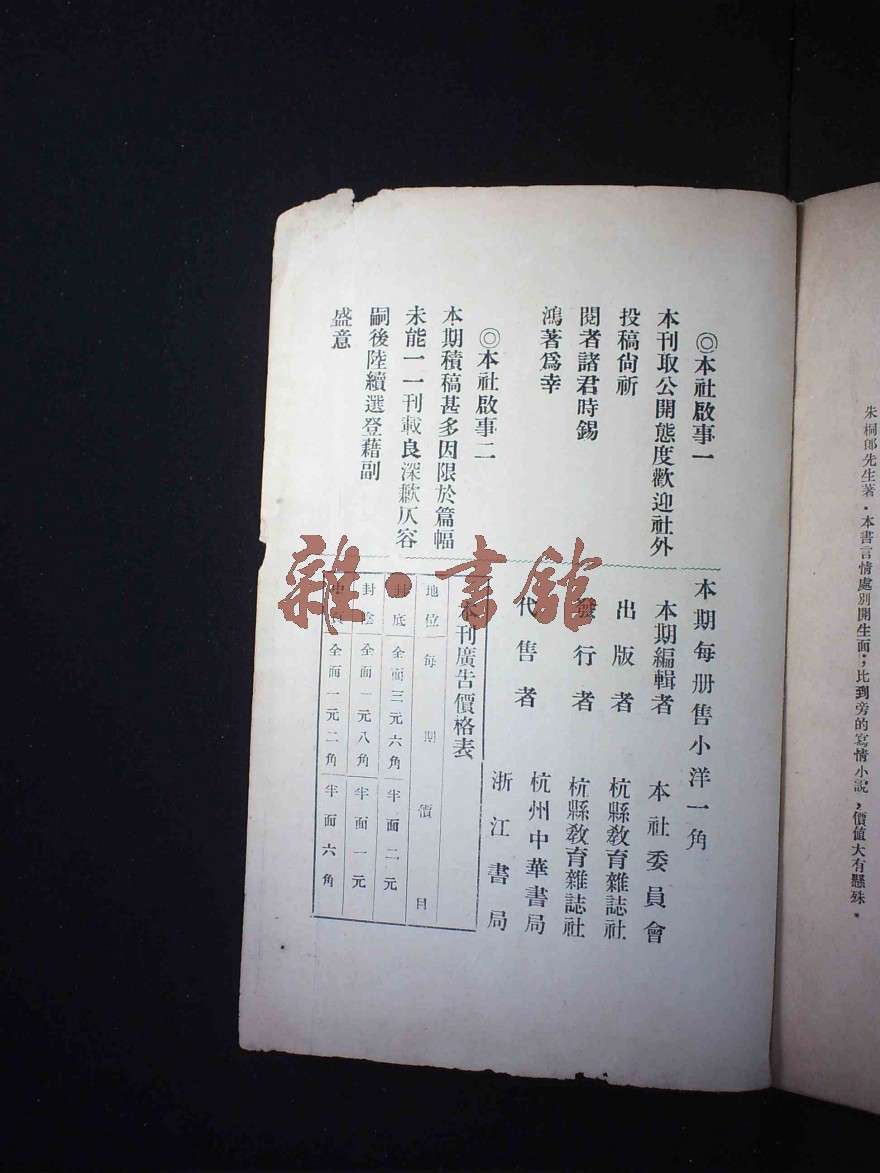 朱桐郎先生著．本書言情處別開生面；比到旁的寫情小說，價值大有懸殊．
◎本社啟事一
本刊取公開態度歡迎社外
投稿尙祈
閱者諸君時錫
鴻著爲幸
◎本社啟事二
本期積稿甚多因限於篇幅
未能一一刊載良深歉仄容
嗣後陸續選登藉副
盛意
本期每册售小洋一角
本期編輯者 本社委員會
出版者 杭縣敎育雜誌社
發行者 杭縣敎育雜誌社
代售者 杭州中華書局
浙江書局
本刊廣告價格表
地位 每期價目
封底 全面三元六角 半面二元
封陰 全面一元八角 半面一元
中頁 全面一元二角 半面六角
雜·書館